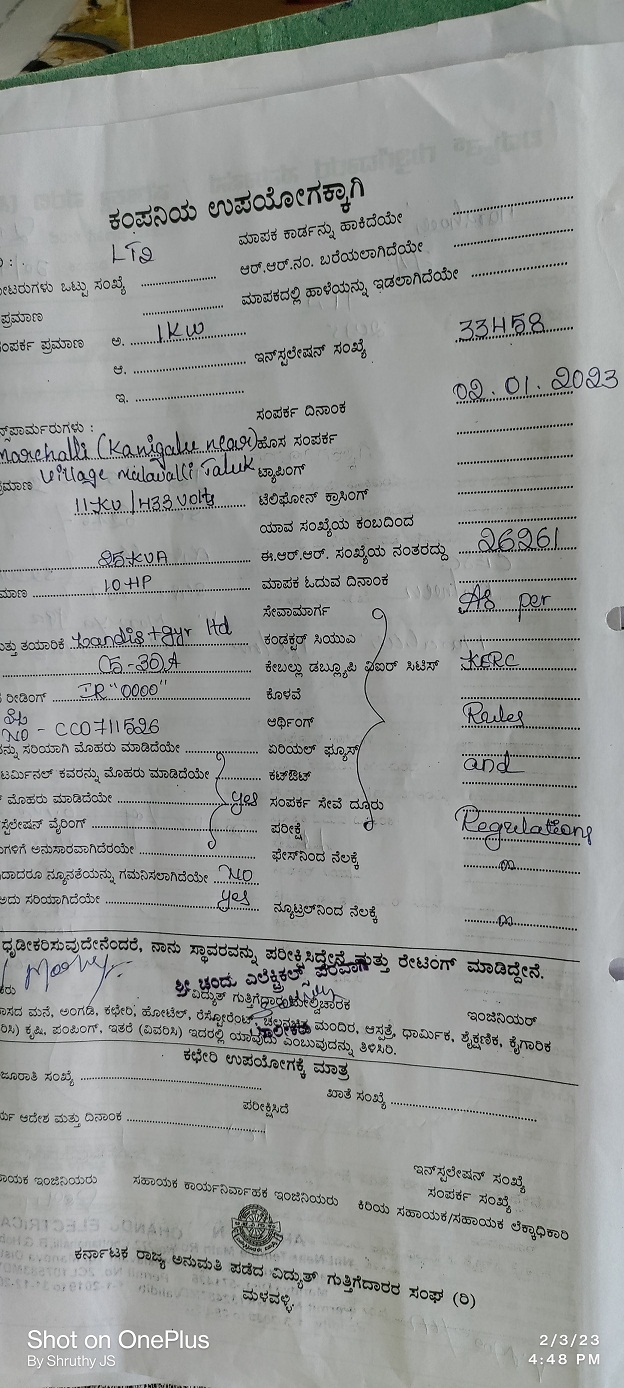 ಕಂಪನಿಯ ಉಪಯೋಗಕ್ಕಾಗಿ
LT2 ಮಾಪಕ ಕಾರ್ಡನ್ನು ಹಾಕಿದೆಯೇ
ಒಟ್ಟು ಸಂಖ್ಯೆ ಆರ್.ಆರ್.ನಂ. ಬರೆಯಲಾಗಿದೆಯೇ
ಪ್ರಮಾಣ ಮಾಪಕದಲ್ಲಿ ಹಾಳೆಯನ್ನು ಇಡಲಾಗಿದೆಯೇ
ಪ್ರಮಾಣ ಅ. 1KW
ಆ. ಇನ್‌ಸ್ಟಲೇಷನ್ ಸಂಖ್ಯೆ 33458
ಇ.
ಸಂಪರ್ಕ ದಿನಾಂಕ 02.01.2023
Marehalli (Kanigalu near) ಹೊಸ ಸಂಪರ್ಕ
village malavalli Taluk ಟ್ಯಾಪಿಂಗ್
11KV/433 Volts ಟೆಲಿಫೋನ್ ಕ್ರಾಸಿಂಗ್
ಯಾವ ಸಂಖ್ಯೆಯ ಕಂಬದಿಂದ
25KVA ಈ.ಆರ್.ಆರ್. ಸಂಖ್ಯೆಯ ನಂತರದ್ದು 26261
10HP ಮಾಪಕ ಓದುವ ದಿನಾಂಕ
ಸೇವಾಮಾರ್ಗ As per
ಮತ್ತು ತಯಾರಿಕೆ Landis+gyr ltd ಕಂಡಕ್ಟರ್ ಸಿಯುಎ
05-30A ಕೇಬಲ್ಲು ಡಬ್ಲ್ಯೂಪಿ ವಿಐಆರ್ ಸಿಟಿಸ್ KERC
ರೀಡಿಂಗ್ IR "0000" ಕೊಳವೆ
NO - CC0711526 ಆರ್ಥಿಂಗ್ Rules
ಸರಿಯಾಗಿ ಮೊಹರು ಮಾಡಿದೆಯೇ ಏರಿಯಲ್ ಫ್ಯೂಸ್
ಕವರನ್ನು ಮೊಹರು ಮಾಡಿದೆಯೇ ಕಟ್‌ಔಟ್ and
ಮೊಹರು ಮಾಡಿದೆಯೇ yes ಸಂಪರ್ಕ ಸೇವೆ ದೂರು
ವೈರಿಂಗ್ ಪರೀಕ್ಷೆ Regulations
ಅನುಸಾರವಾಗಿದೆರಯೇ ಫೇಸ್‌ನಿಂದ ನೆಲಕ್ಕೆ
ನ್ಯೂನತೆಯನ್ನು ಗಮನಿಸಲಾಗಿದೆಯೇ NO
ಅದು ಸರಿಯಾಗಿದೆಯೇ yes ನ್ಯೂಟ್ರಲ್‌ನಿಂದ ನೆಲಕ್ಕೆ
ಧೃಡೀಕರಿಸುವುದೇನೆಂದರೆ, ನಾನು ಸ್ಥಾವರವನ್ನು ಪರೀಕ್ಷಿಸಿದ್ದೇನೆ ಮತ್ತು ರೇಟಿಂಗ್ ಮಾಡಿದ್ದೇನೆ.
ಶ್ರೀ ಚಂದು ಎಲೆಕ್ಟ್ರಿಕಲ್ಸ್ ಪರವಾಗಿ
ಇಂಜಿನಿಯರ್
ಮನೆ, ಅಂಗಡಿ, ಕಛೇರಿ, ಹೋಟೆಲ್, ರೆಸ್ಟೋರೆಂಟ್, ಮಂದಿರ, ಆಸ್ಪತ್ರೆ, ಧಾರ್ಮಿಕ, ಶೈಕ್ಷಣಿಕ, ಕೈಗಾರಿಕ
ಕೃಷಿ, ಪಂಪಿಂಗ್, ಇತರೆ (ವಿವರಿಸಿ) ಇದರಲ್ಲಿ ಯಾವುದು ಎಂಬುವುದನ್ನು ತಿಳಿಸಿರಿ.
ಕಛೇರಿ ಉಪಯೋಗಕ್ಕೆ ಮಾತ್ರ
ಸಂಖ್ಯೆ ಖಾತೆ ಸಂಖ್ಯೆ
ಆದೇಶ ಮತ್ತು ದಿನಾಂಕ ಪರೀಕ್ಷಿಸಿದೆ
ಇನ್‌ಸ್ಟಲೇಷನ್ ಸಂಖ್ಯೆ
ಸಂಪರ್ಕ ಸಂಖ್ಯೆ
ಇಂಜಿನಿಯರು ಸಹಾಯಕ ಕಾರ್ಯನಿರ್ವಾಹಕ ಇಂಜಿನಿಯರು ಕಿರಿಯ ಸಹಾಯಕ/ಸಹಾಯಕ ಲೆಕ್ಕಾಧಿಕಾರಿ
ಕರ್ನಾಟಕ ರಾಜ್ಯ ಅನುಮತಿ ಪಡೆದ ವಿದ್ಯುತ್ ಗುತ್ತಿಗೆದಾರರ ಸಂಘ (ರಿ)
ಮಳವಳ್ಳಿ.
Shot on OnePlus
By Shruthy JS
2/3/23
4:48 PM